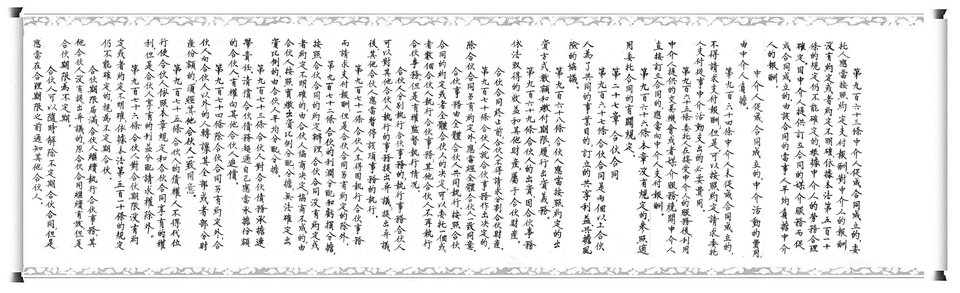 第九百六十三條 中介人促成合同成立的，委
托人應當按照約定支付報酬。對中介人的報酬
沒有約定或者約定不明確，依據本法第五百一十
條的規定仍不能確定的，根據中介人的勞務合理
確定。因中介人提供訂立合同的媒介服務而促
成合同成立的，由該合同的當事人平均負擔中介
人的報酬。
中介人促成合同成立的，中介活動的費用，
由中介人負擔。
第九百六十四條 中介人未促成合同成立的，
不得請求支付報酬；但是，可以按照約定請求委托
人支付從事中介活動支出的必要費用。
第九百六十五條 委托人在接受中介人的服務後，利用
中介人提供的交易機會或者媒介服務，繞開中介人
直接訂立合同的，應當向中介人支付報酬。
第九百六十六條 本章沒有規定的，參照適
用委托合同的有關規定。
第二十七章 合伙合同
第九百六十七條 合伙合同是兩個以上合伙
人為了共同的事業目的，訂立的共享利益、共擔風
險的協議。
第九百六十八條 合伙人應當按照約定的出
資方式、數額和繳付期限，履行出資義務。
第九百六十九條 合伙人的出資、因合伙事務
依法取得的收益和其他財產，屬于合伙財產。
合伙合同終止前，合伙人不得請求分割合伙財產。
第九百七十條 合伙人就合伙事務作出決定的，
除合伙合同另有約定外，應當經全體合伙人一致同意。
合伙事務由全體合伙人共同執行。按照合伙
合同的約定或者全體合伙人的決定，可以委托一個或
者數個合伙人執行合伙事務；其他合伙人不再執行
合伙事務，但是有權監督執行情況。
合伙人分別執行合伙事務的，執行事務合伙人
可以對其他合伙人執行的事務提出異議；提出異議
後，其他合伙人應當暫停該項事務的執行。
第九百七十一條 合伙人不得因執行合伙事務
而請求支付報酬，但是合伙合同另有約定的除外。
第九百七十二條 合伙的利潤分配和虧損分擔，
按照合伙合同的約定辦理；合伙合同沒有約定或
者約定不明確的，由合伙人協商決定；協商不成的，由
合伙人按照實繳出資比例分配、分擔；無法確定出
資比例的，由合伙人平均分配、分擔。
第九百七十三條 合伙人對合伙債務承擔連
帶責任。清償合伙債務超過自己應當承擔份額
的合伙人，有權向其他合伙人追償。
第九百七十四條 除合伙合同另有約定外，合
伙人向合伙人以外的人轉讓其全部或者部分財
產份額的，須經其他合伙人一致同意。
第九百七十五條 合伙人的債權人不得代位
行使合伙人依照本章規定和合伙合同享有的權
利，但是合伙人享有的利益分配請求權除外。
第九百七十六條 合伙人對合伙期限沒有約
定或者約定不明確，依據本法第五百一十條的規定
仍不能確定的，視為不定期合伙。
合伙期限屆滿，合伙人繼續執行合伙事務，其
他合伙人沒有提出異議的，原合伙合同繼續有效，但是
合伙期限為不定期。
合伙人可以隨時解除不定期合伙合同，但是
應當在合理期限之前通知其他合伙人。